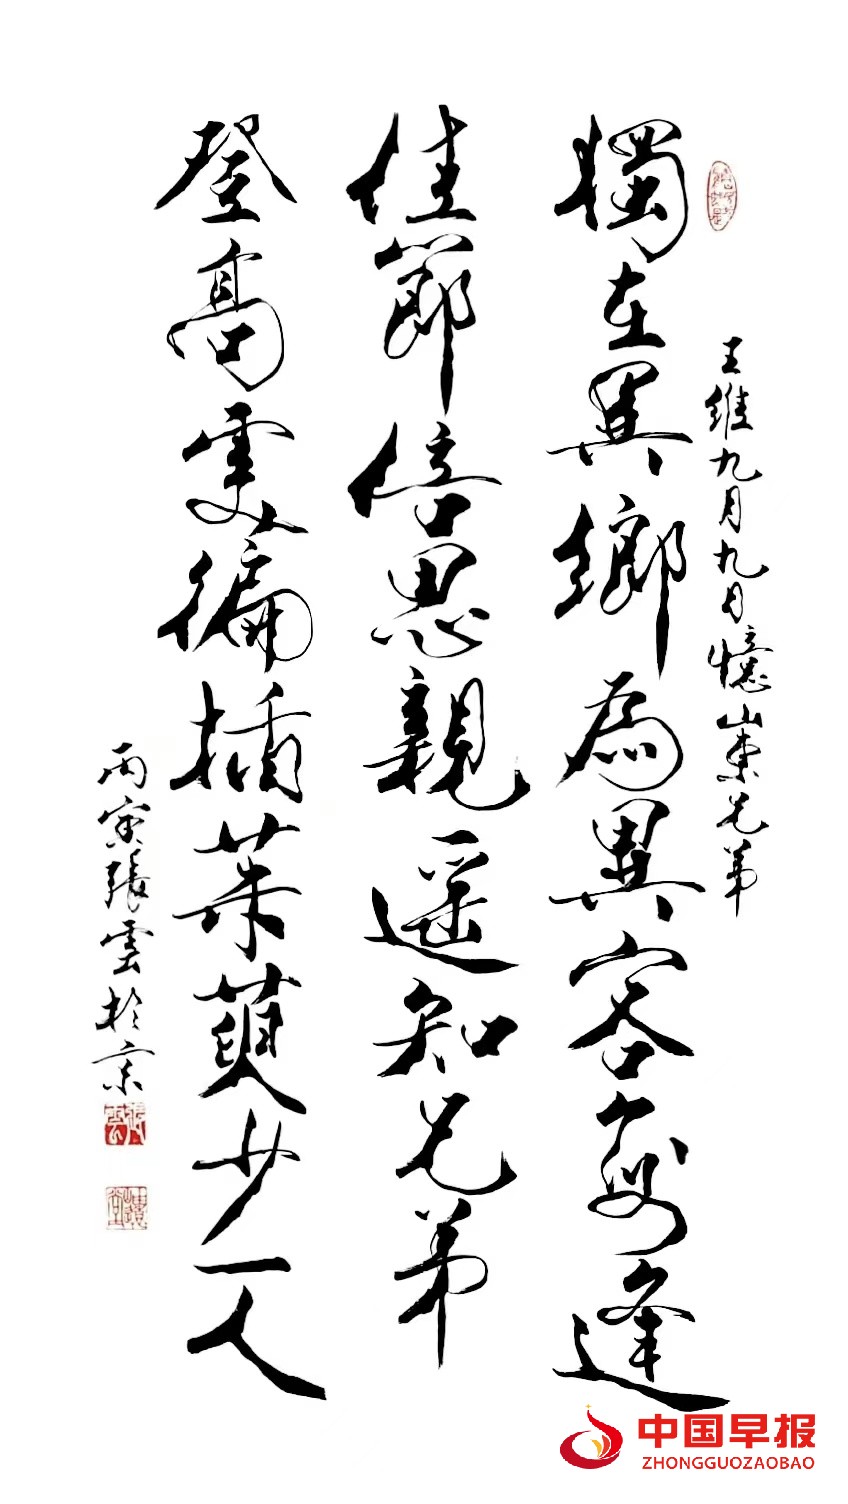 王維九月九日憶山東兄弟
獨在異鄉為異客每逢
佳節倍思親遥知兄弟
登高處徧插茱萸少一人
丙寅張雲於京
張雲
中国早报
ZHONGGUOZAOBAO